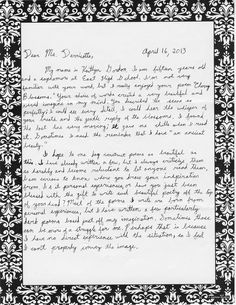 April 16, 2013
Dear Mr.
My name is Kaitlyn. I am fifteen years old
and a sophomore at East High School. I am not very
familiar with your work, but I really enjoyed your poem "Cherry
Blossoms." Your choice of words created a very beautiful and
vivid imagine in my mind. You described the scene so
perfectly I could see every detail, I could hear the
and the gentle of the blossoms. I found
the last line very moving; It gave me chills when I read
it. Sometimes I need the reminder that I have "an ancient
beauty."
I hope to one day construct poems as beautiful as
this. I have already written a few, but I always criticize them
so harshly and become reluctant to let anyone read them.
I am curious to know where you draw your inspiration
from. Is it personal experience, or have you just been
blessed with the gift to write such beautiful poetry off the top
of your head? Most of the poems I write are from
personal experiences, but I have written a few particularly
poems based just off my imagination. Sometimes those
can be more of a struggle for me. Perhaps that is because
I have no direct experience with the situation, so I feel
I can't properly convey the image.